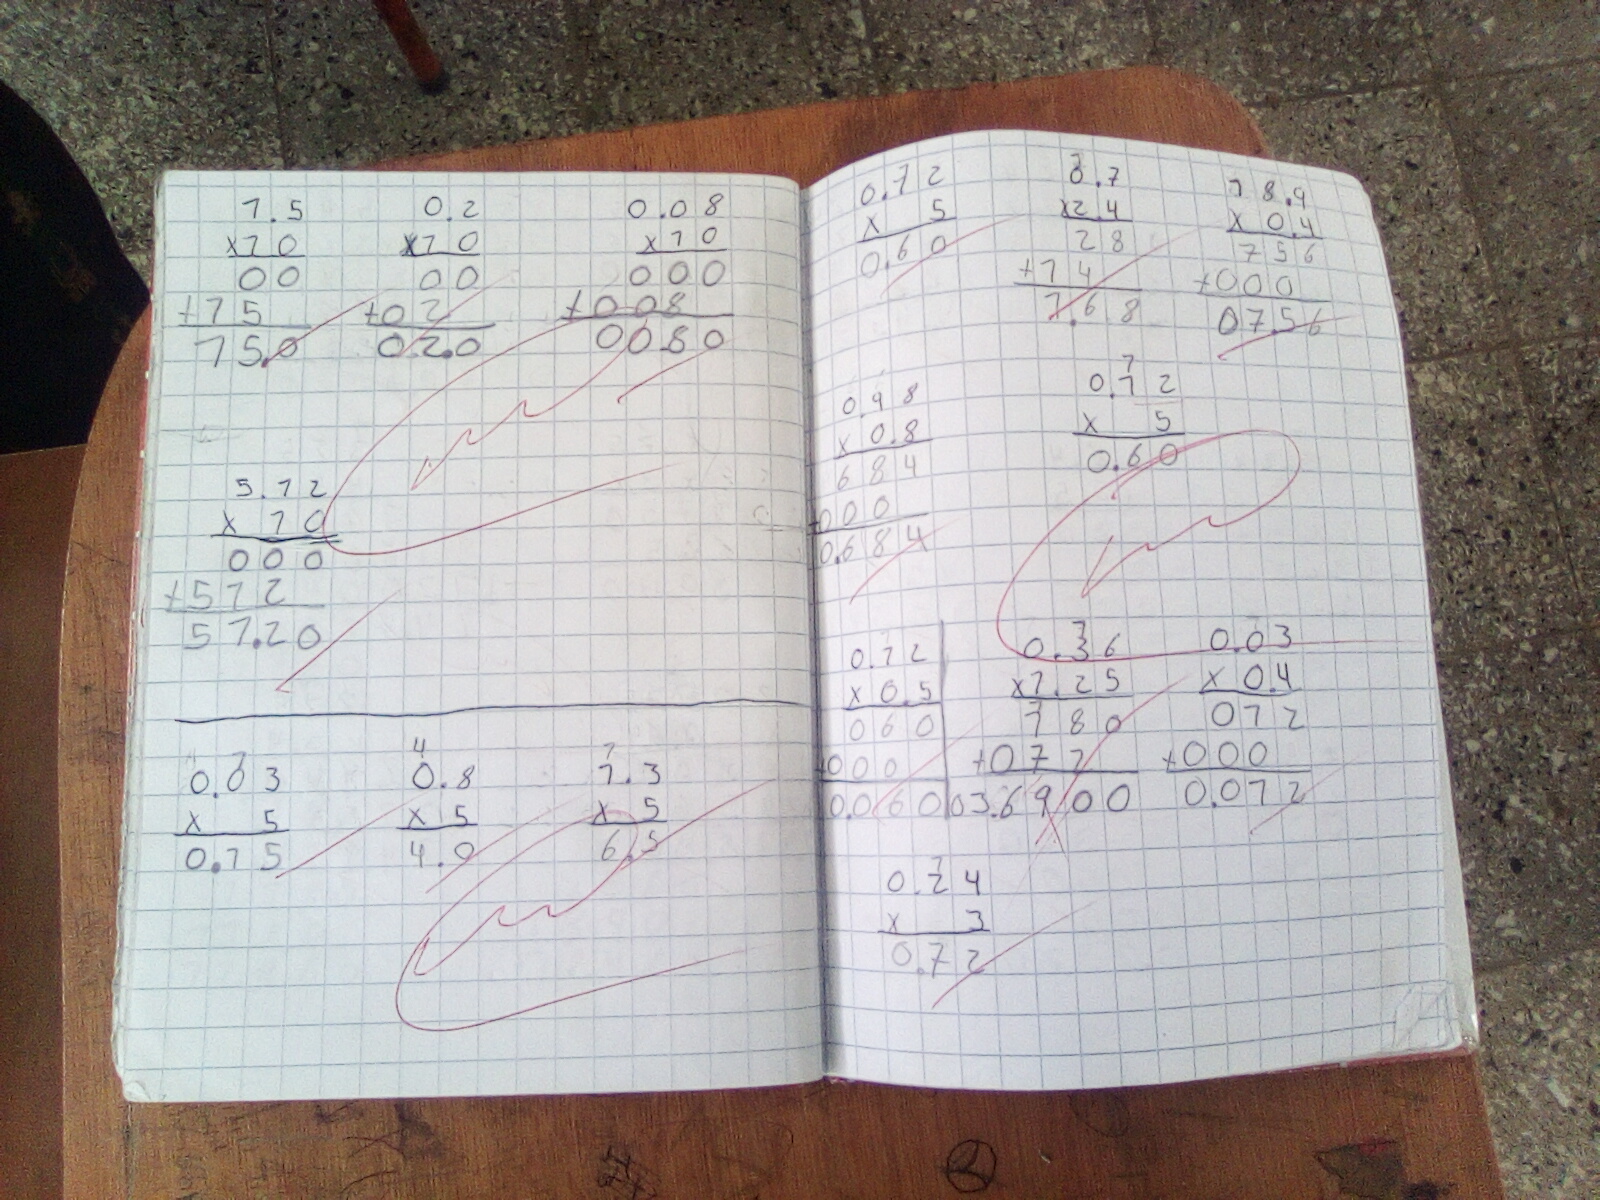 1.5
x10
00
+15
15.0
0.2
x10
00
+02
02.0
0.08
x10
000
+008
0080
5.12
x 10
000
+512
51.20
1
0.03
x 5
0.15
4
0.8
x 5
4.0
1
1.3
x 5
6.5
0.12
x 5
0.60
0.7
x2.4
28
+14
1.68
18.9
x 0.4
756
+000
07.56
0.98
x 0.8
684
+000
0.684
1
0.12
x 5
0.60
0.12
x 0.5
060
+000
0.060
0.36
x1.25
180
+072
03.6900
0.03
x 0.4
012
+000
0.012
1
0.24
x 3
0.72